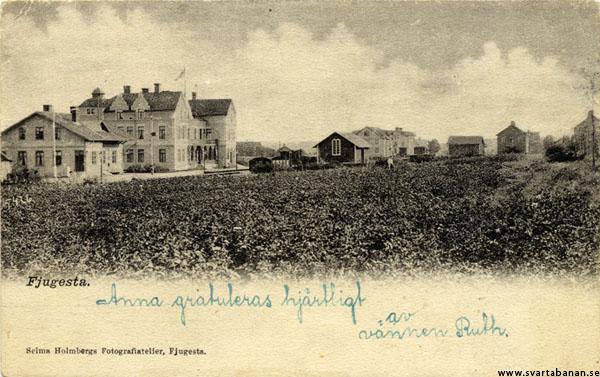 Fjugesta.
Anna gratuleras hjärtligt
av
vännen Ruth.
Selma Holmbergs Fotografiatelier, Fjugesta.
www.svartabanan.se